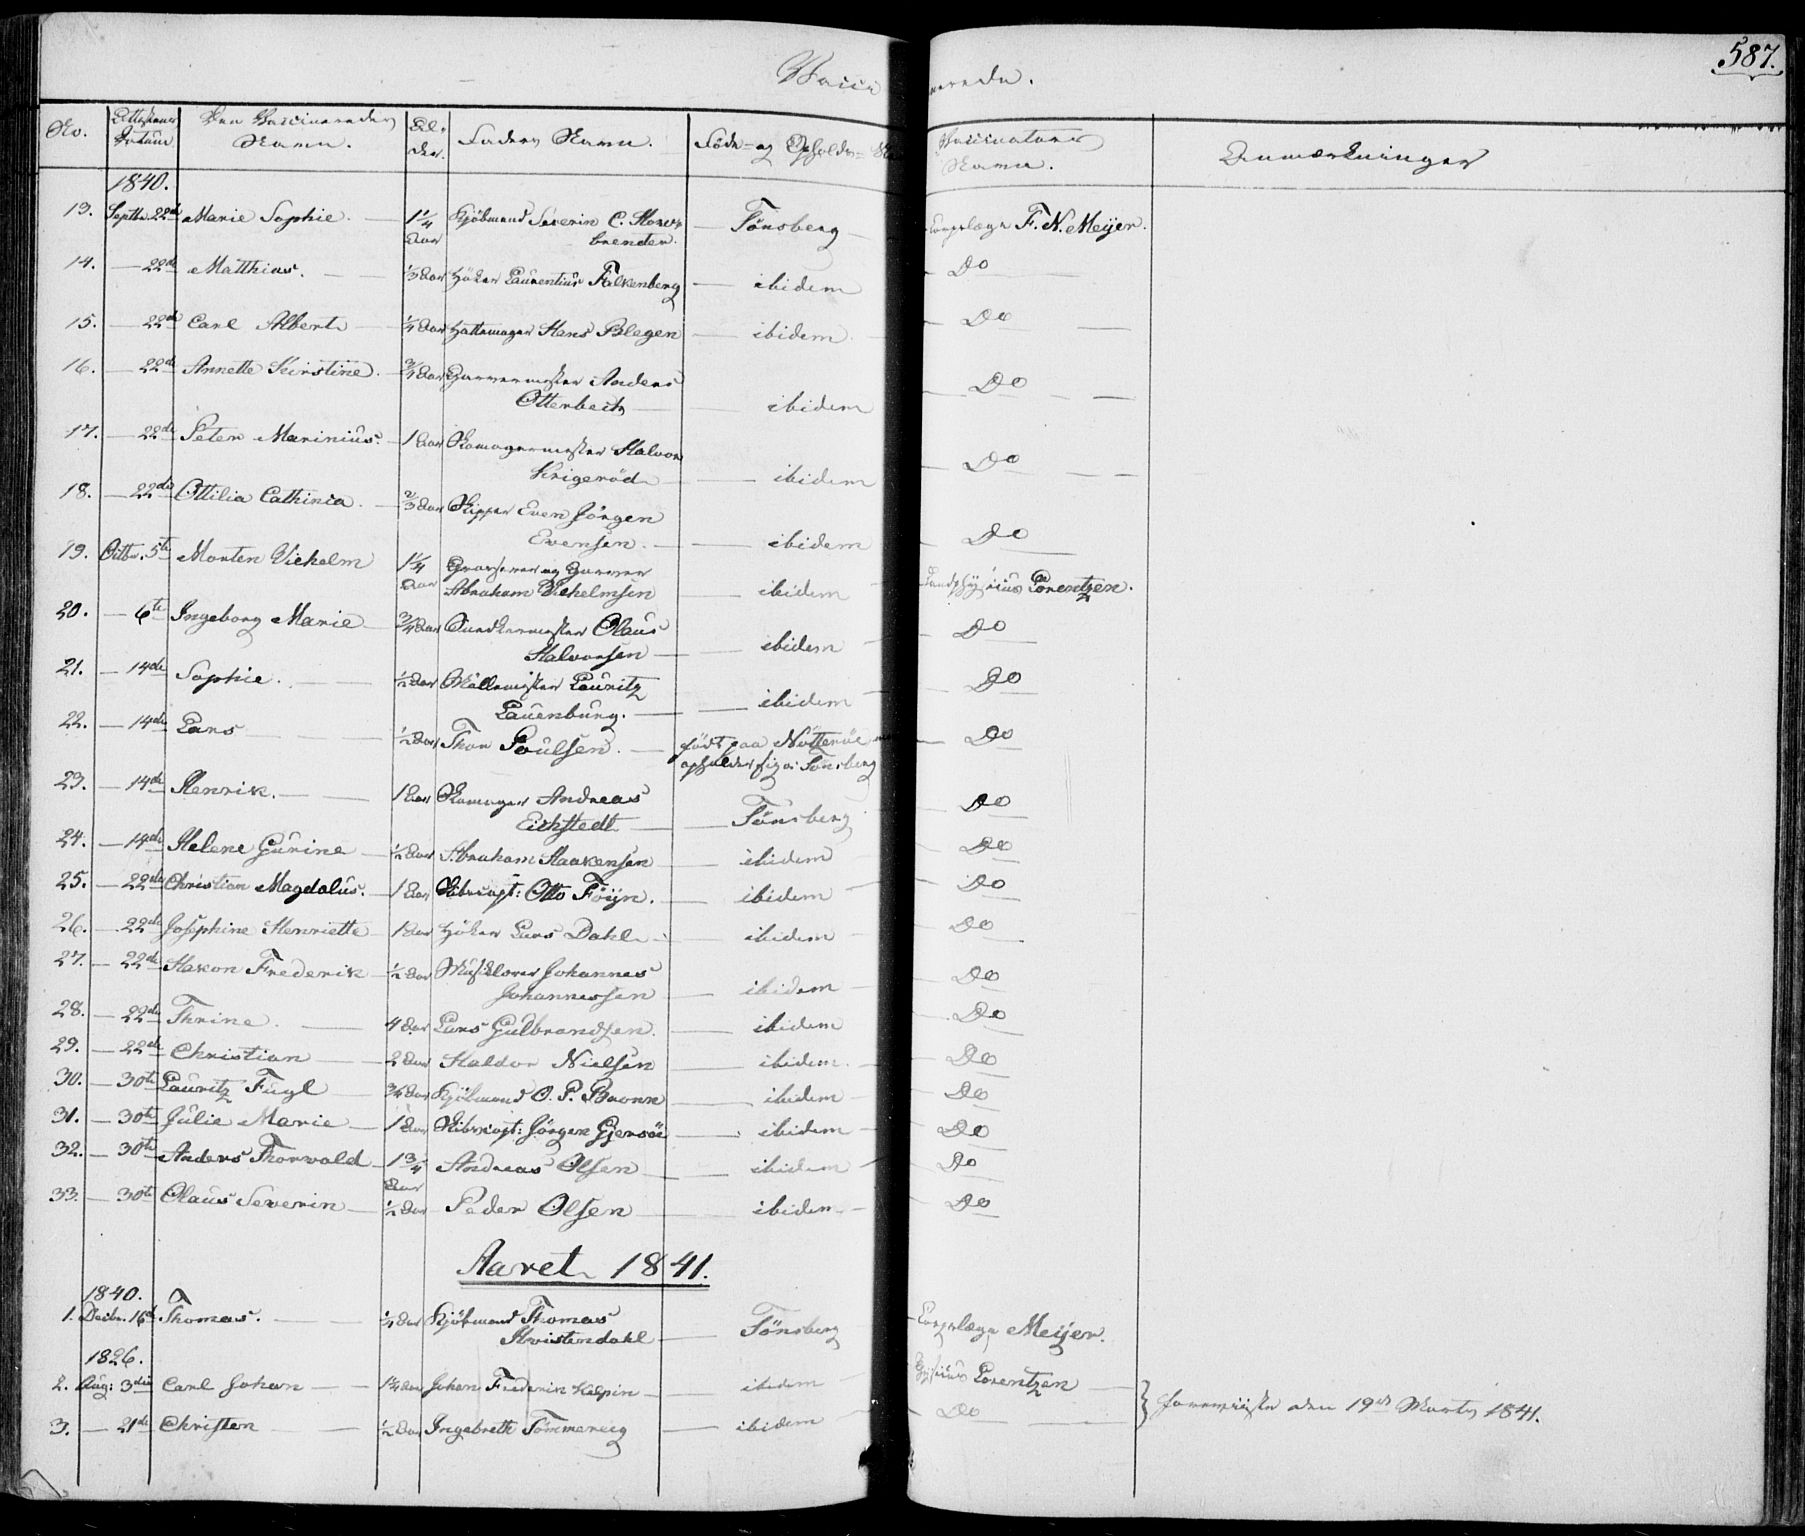 587.
Vaccinerede.
No. Attestens Datum Den Vaccineredes Navn. Al- der. Faders Navn. Føde- og Opholds- Vaccinators Navn. Anmærkninger
1840.
13. Septbr 22de Marie Sophie. 1 1/4 Aar Kjöbmand Severin C. Tönsberg Corpslæge F. N. Meijer.
brender.
14. — 22de Matthias. 1/3 Aar Höker Laurentius Falkenberg — ibidem Do
15. — 22de Carl Albert 1/4 Aar Hattemager Hans Blegen — ibidem Do
16. — 22de Annette Kirstine. 3/4 Aar Garvermester Anders
Otterbech — ibidem Do
17. — 22de Peter Marinius. 1 Aar Skomagermester Halvor
Krigeröd — ibidem Do
18. — 22de Ottilia Cathinca. 2/3 Aar Skipper Even Jörgen
Evensen. — ibidem Do
19. Octbr. 5te Morten Vilhelm 1 1/4 Aar og Garver
Abraham Vilhelmsen — ibidem Landphysicus Lorentzen.
20. — 6te Ingeborg Marie 3/4 Aar Olaus
Halvorsen — ibidem Do
21. — 14de Sophie. 1/2 Aar Lauritz
Lauenburg. — ibidem Do
22. — 14de Lars 1/2 Aar Thor Poulsen. — født paa Nötteröe Do
opholder sig i Tönsberg
23. — 14de Henrik. 1 Aar Skomager Andreas
Eickstedt — Tönsberg Do
24. — 14de Helene Gurine 1/2 Aar Abraham Haakensen — ibidem Do
25. — 22de Christian Magdalus. 1 Aar Skibscapt: Otto Föyn. — ibidem Do
26. — 22de Josephine Henriette 1 Aar Höker Lars Dahl — ibidem Do
27. — 22de Hakon Frederik 1/2 Aar Johannes
Johannessen — ibidem Do
28. — 22de Thrine. 4 Aar Lars Gulbrandsen. — ibidem Do
29. — 22de Christian 2 Aar Haldor Nielsen — ibidem Do
30. — 30te Lauritz Fugl 3/4 Aar Kjöbmand O. P. — ibidem Do
31. — 30te Julie Marie 1 Aar Skibscapt: Jörgen Gjersöe — ibidem Do
32. — 30te Anders Thorvald 1 3/4 Aar Andreas Olsen — ibidem Do
33. — 30te Olaus Severin 1/2 Aar Peder Olsen — ibidem Do
Aaret 1841.
1840.
1. Decbr. 16de Thomas. 1/4 Aar Kjöbmand Thomas
Kristendahl — Tönsberg Corpslæge Meijer.
1826.
2. Aug: 3die Carl Johan 1 1/4 Aar Johan Frederik — ibidem Physicus Lorentzen
3. — 21de Christen 1/2 Aar Ingebreth Tömmervig — ibidem Do } foreviiste den 19de Marts 1841.